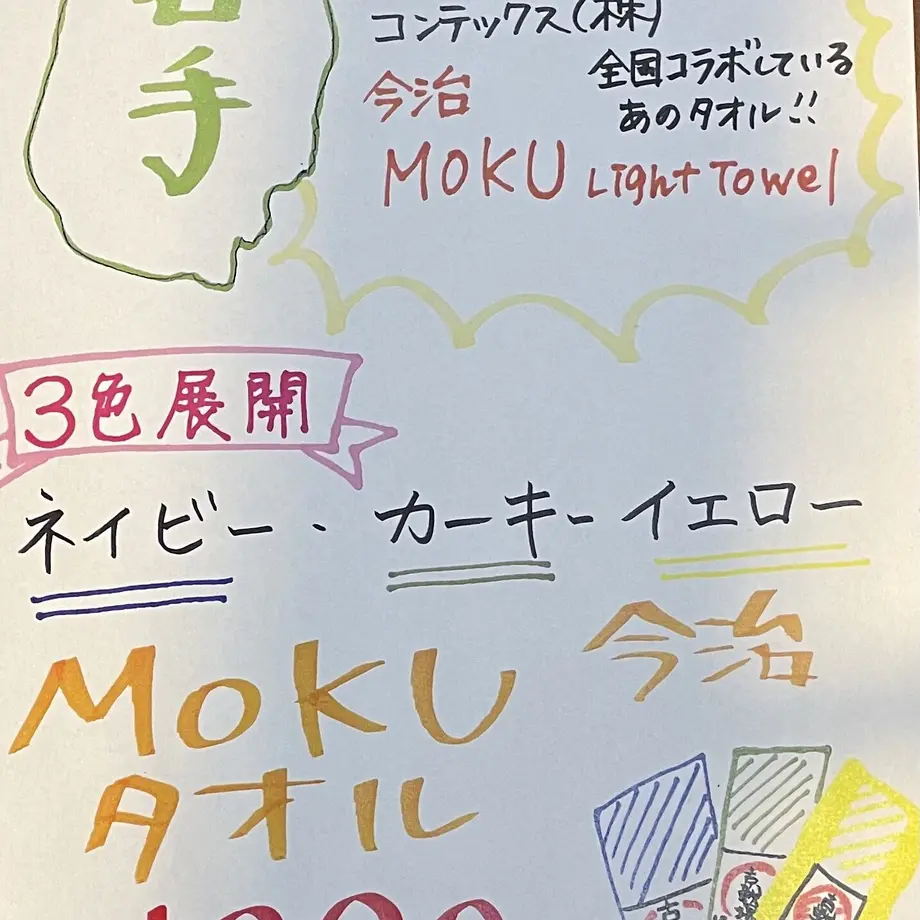 手
コンテックス(株)
今治
全国コラボしている
あのタオル!!
MOKU Light Towel
3色展開
ネイビー・カーキー イエロー
MOKU
今治
タオル